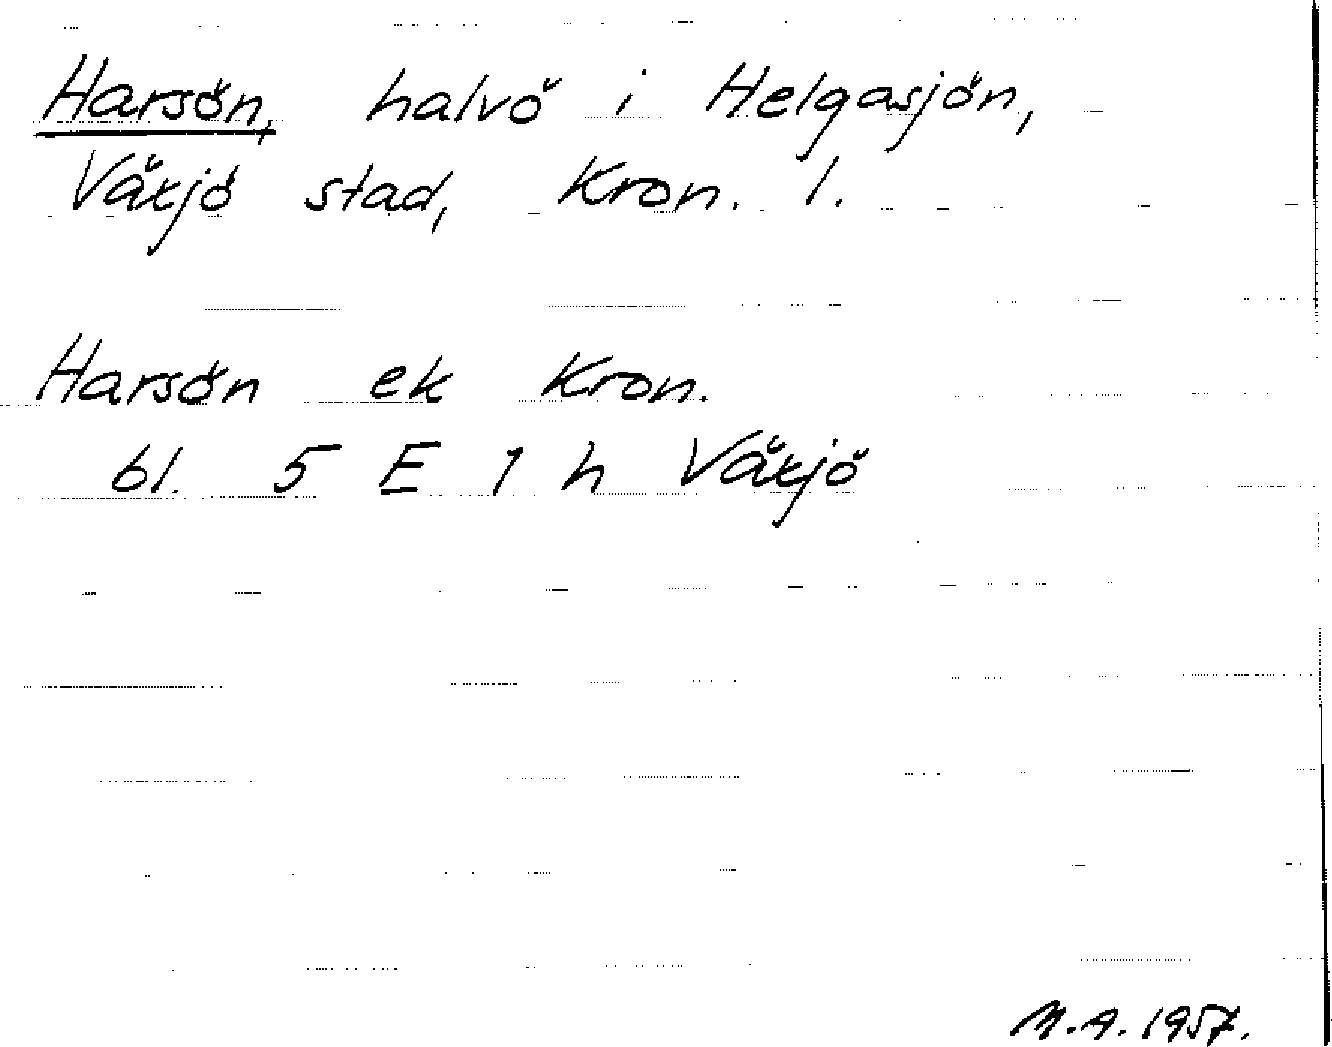 Harsön, halvö i Helgasjön,
Växjö stad, Kron. l.
Harsön ek Kron.
bl. 5 E 1 h Växjö
M.A. 1957.